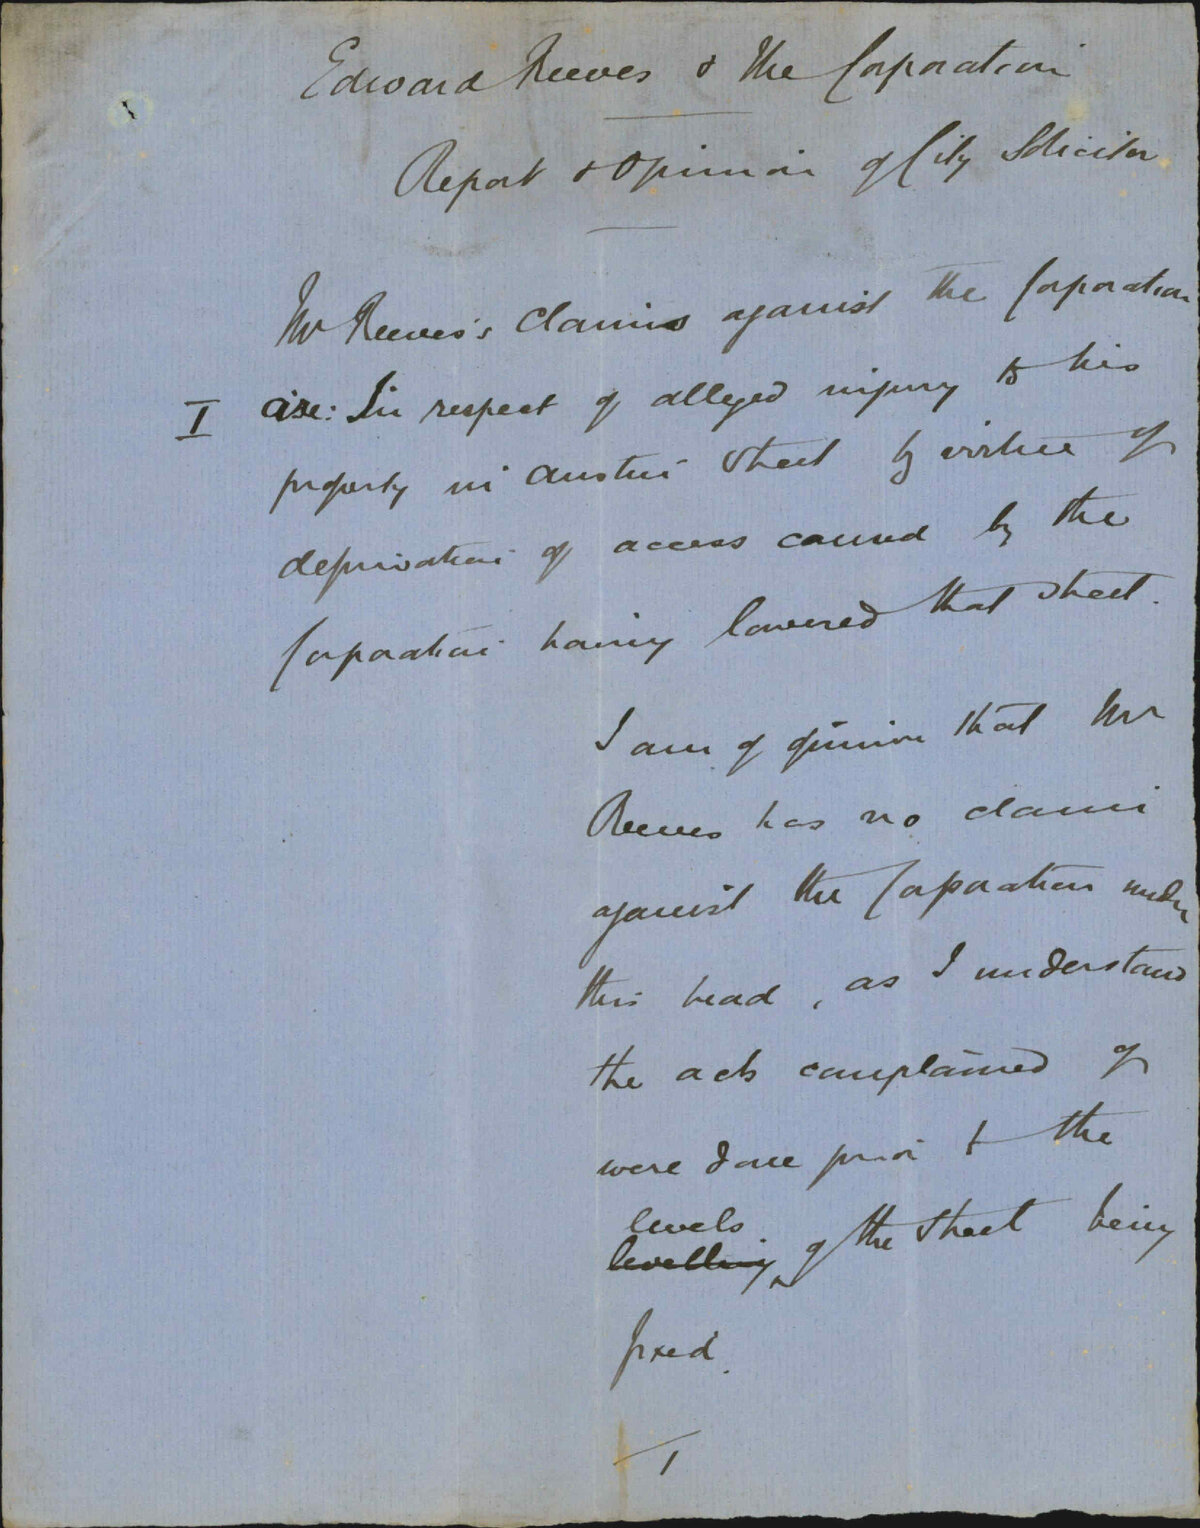 Edward Reeves & The Corporation
Report & Opinion of City Solicitor
Mr Reeves's claims against the Corporation
I are: In respect of alleged injury to his
property in Austin Street by virtue of
deprivation of access caused by the
Corporation having lowered that street.
I am of opinion that Mr
Reeves has no claim
against the Corporation under
this head, as I understand
the acts complained of
were done prior to the
levels
levelling of the Street being
fixed.
1